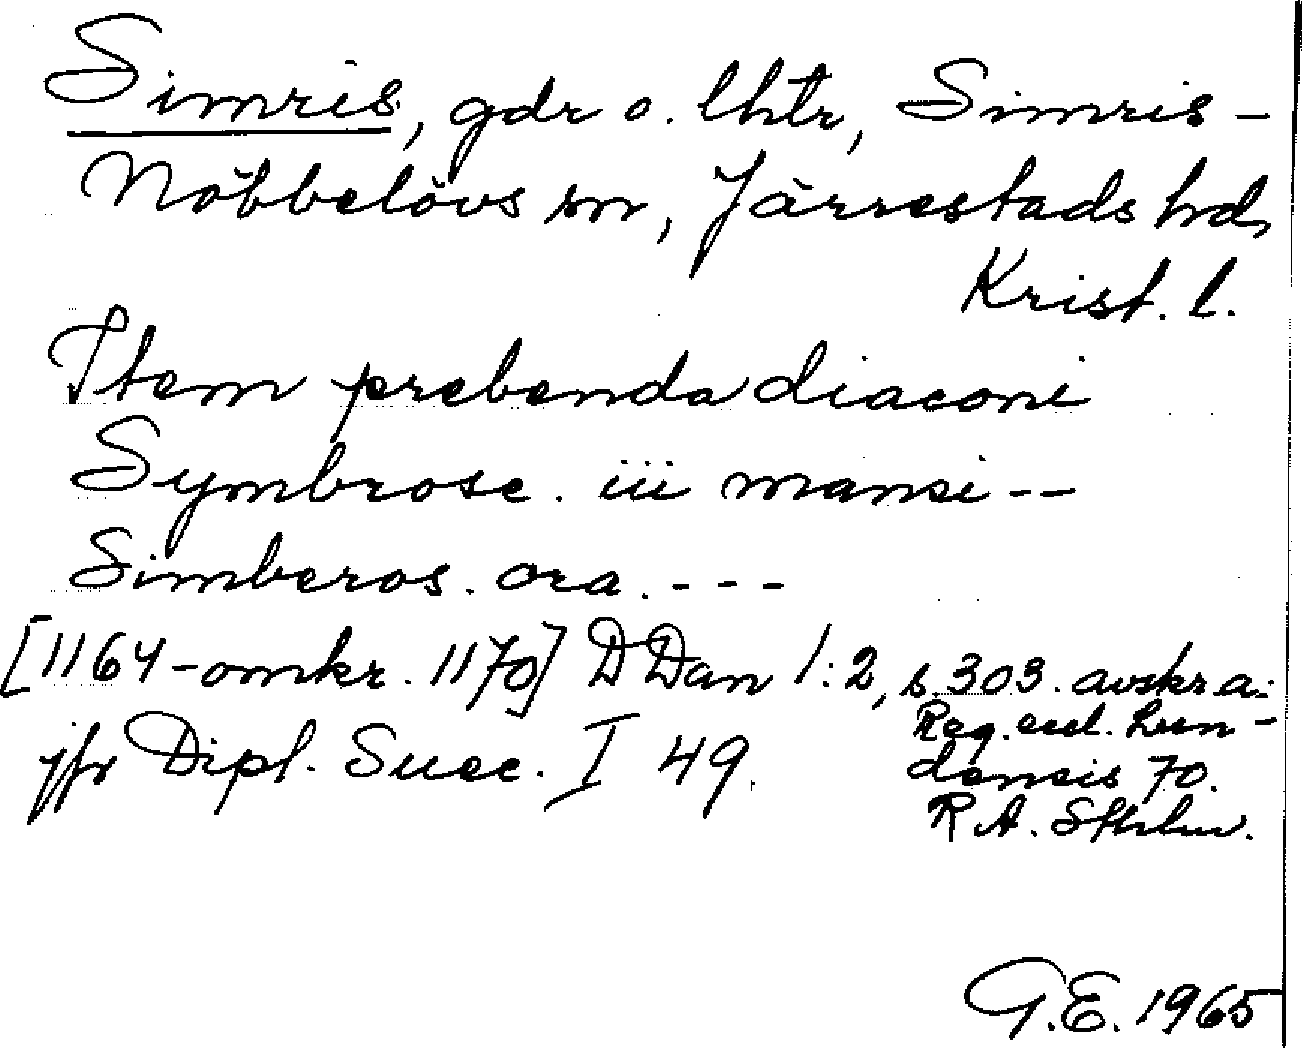 Simris, gdr o. lhtr, Simris-
Nöbbelövs sn, Järrestads hd,
Krist. l.
Item prebenda diaconi
Symbrose. iii mansi --
Simberos. ora. ---
[1164-omkr. 1170] D Dan 1:2, s. 303. avskr a:
Reg. eccl. Lun-
densis 70.
R A. Sthlm.
jfr Dipl. Suec. I 49.
G.E. 1965